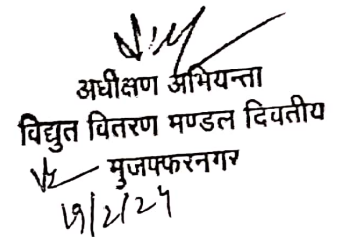 अधीक्षण अभियन्ता
विद्युत वितरण मण्डल दिवतीय
मुजफ्फरनगर
19/2/24